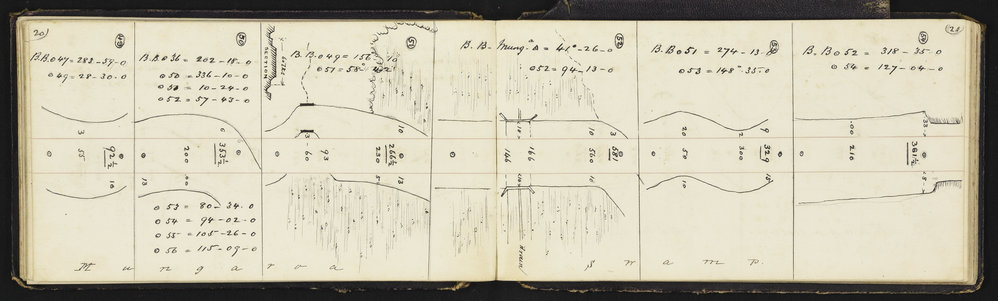 20)
49
B.B.o47=283-59-0
o49=28-30.0
3
55
92½
10
50
B.B.o36 = 202-18-0
o50 = 336-10-0
o51 = 10-24-0
o52 = 57-43-0
0
200
353½
13
o53 = 80-34.0
o54 = 94-02-0
o55 = 105-26-0
o56 = 115-09-0
SECTION
51
B.B.o49=156-10
o51=58°
10
60
93
230
266½
5
13
52
B.B- Mung-a Δ = 41°-26-0
o52=94-13-0
10
3
146
166
560
581
11
Drain
53
B.Bo51 = 274-13-0
o53=148°35.0
20
2
9
50
300
329
10
(21
54
B.Bo52 = 318-35-0
o54 = 127-04-0
216
381½
Mungaroa Swamp.